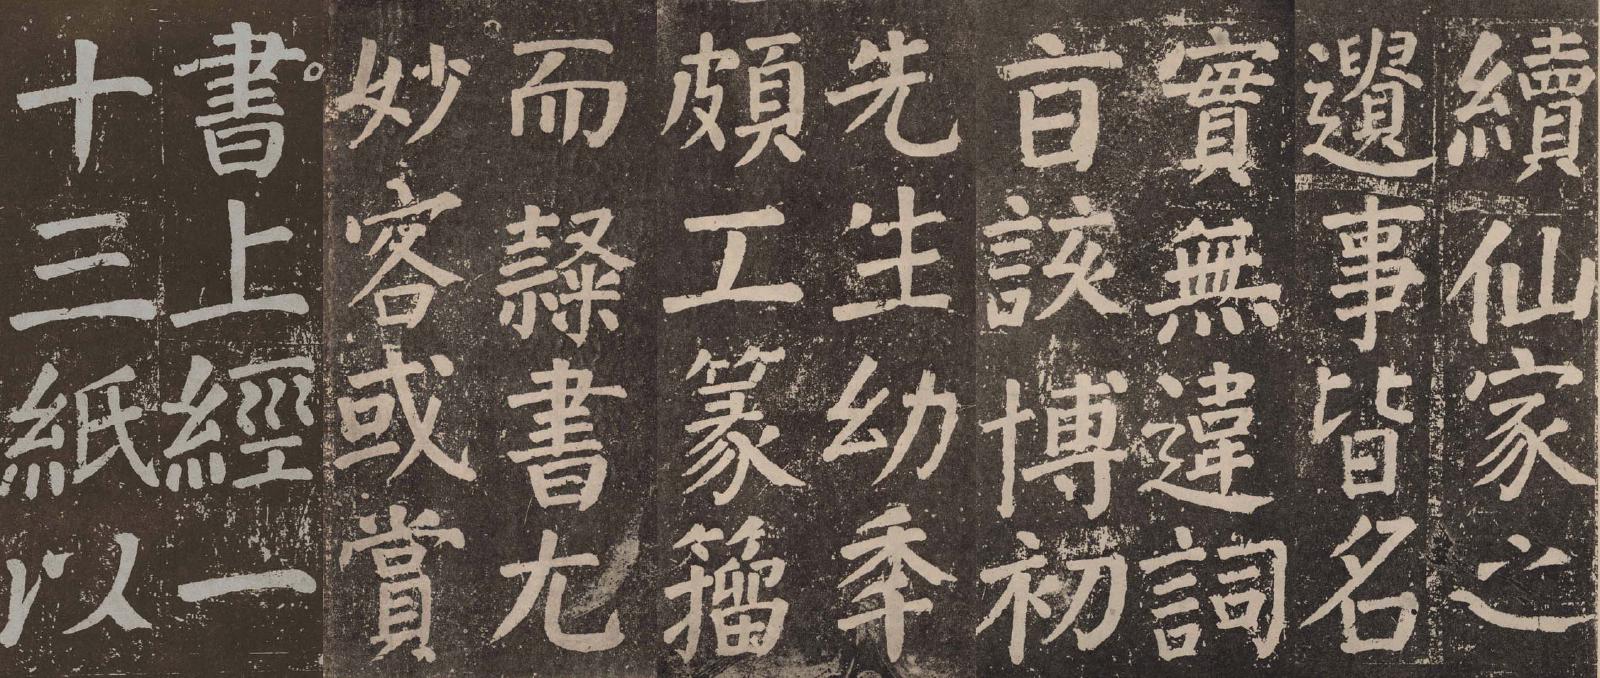 續仙家之
遺事皆名
實無違詞
旨該博初
先生幼年
頗工篆籀
而隸書尤
妙容或賞
書上經一
十三紙以